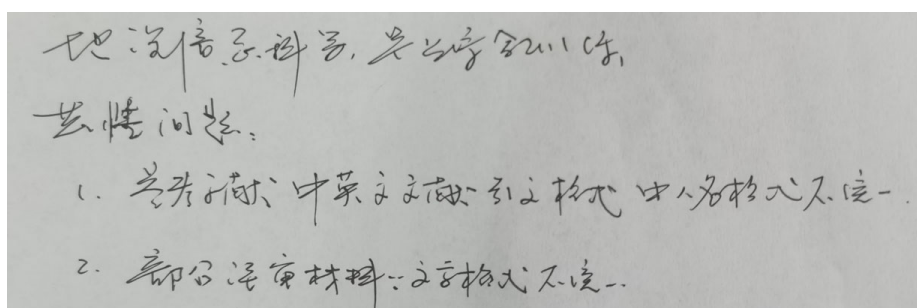 地理信息科学,
共性问题:
1. 参考文献 中英文文献引文格式 中人名格式不统一.
2. 部分送审材料:文字格式不统一.